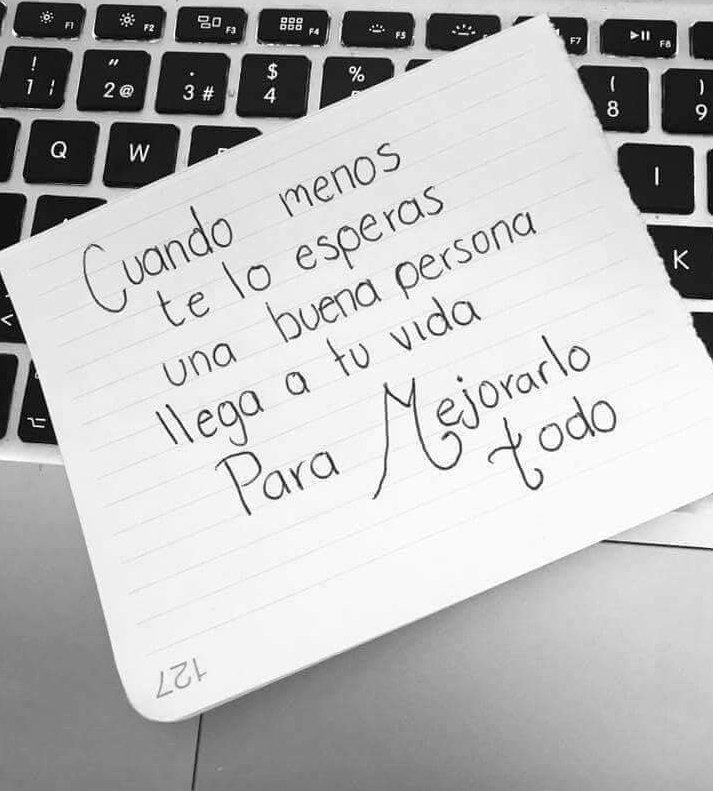 F1 F2 F3 F4 F5 F7 F8
! " · $ % ( )
1 | 2 @ 3 # 4 8 9
Q W I
K
<
Cuando menos
te lo esperas
una buena persona
llega a tu vida
Para Mejorarlo
todo
127